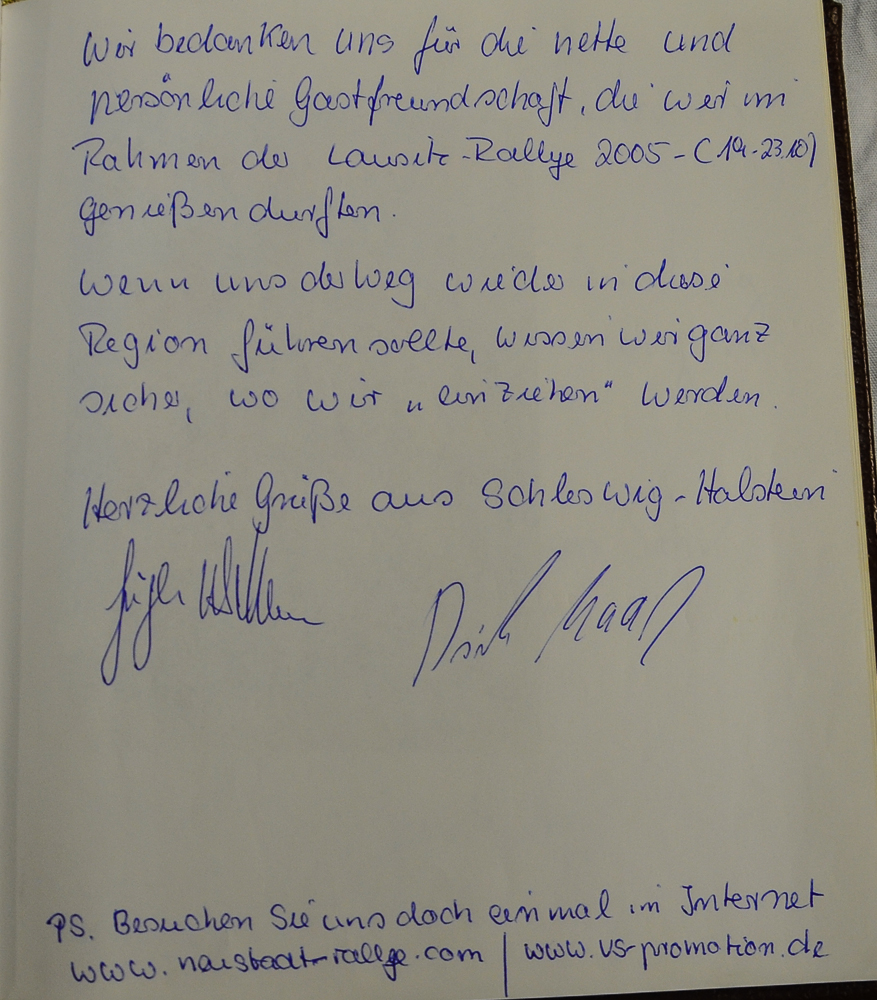 Wir bedanken uns für die nette und
persönliche Gastfreundschaft, die wir im
Rahmen der Lausitz-Rallye 2005 - (19.-23.10)
genießen durften.
Wenn uns der Weg wieder in diese
Region führen sollte, wissen wir ganz
sicher, wo wir „einziehen“ werden.
Herzliche Grüße aus Schleswig-Holstein
Dirk
PS. Besuchen Sie uns doch einmal im Internet
www. | www.vs-promotion.de